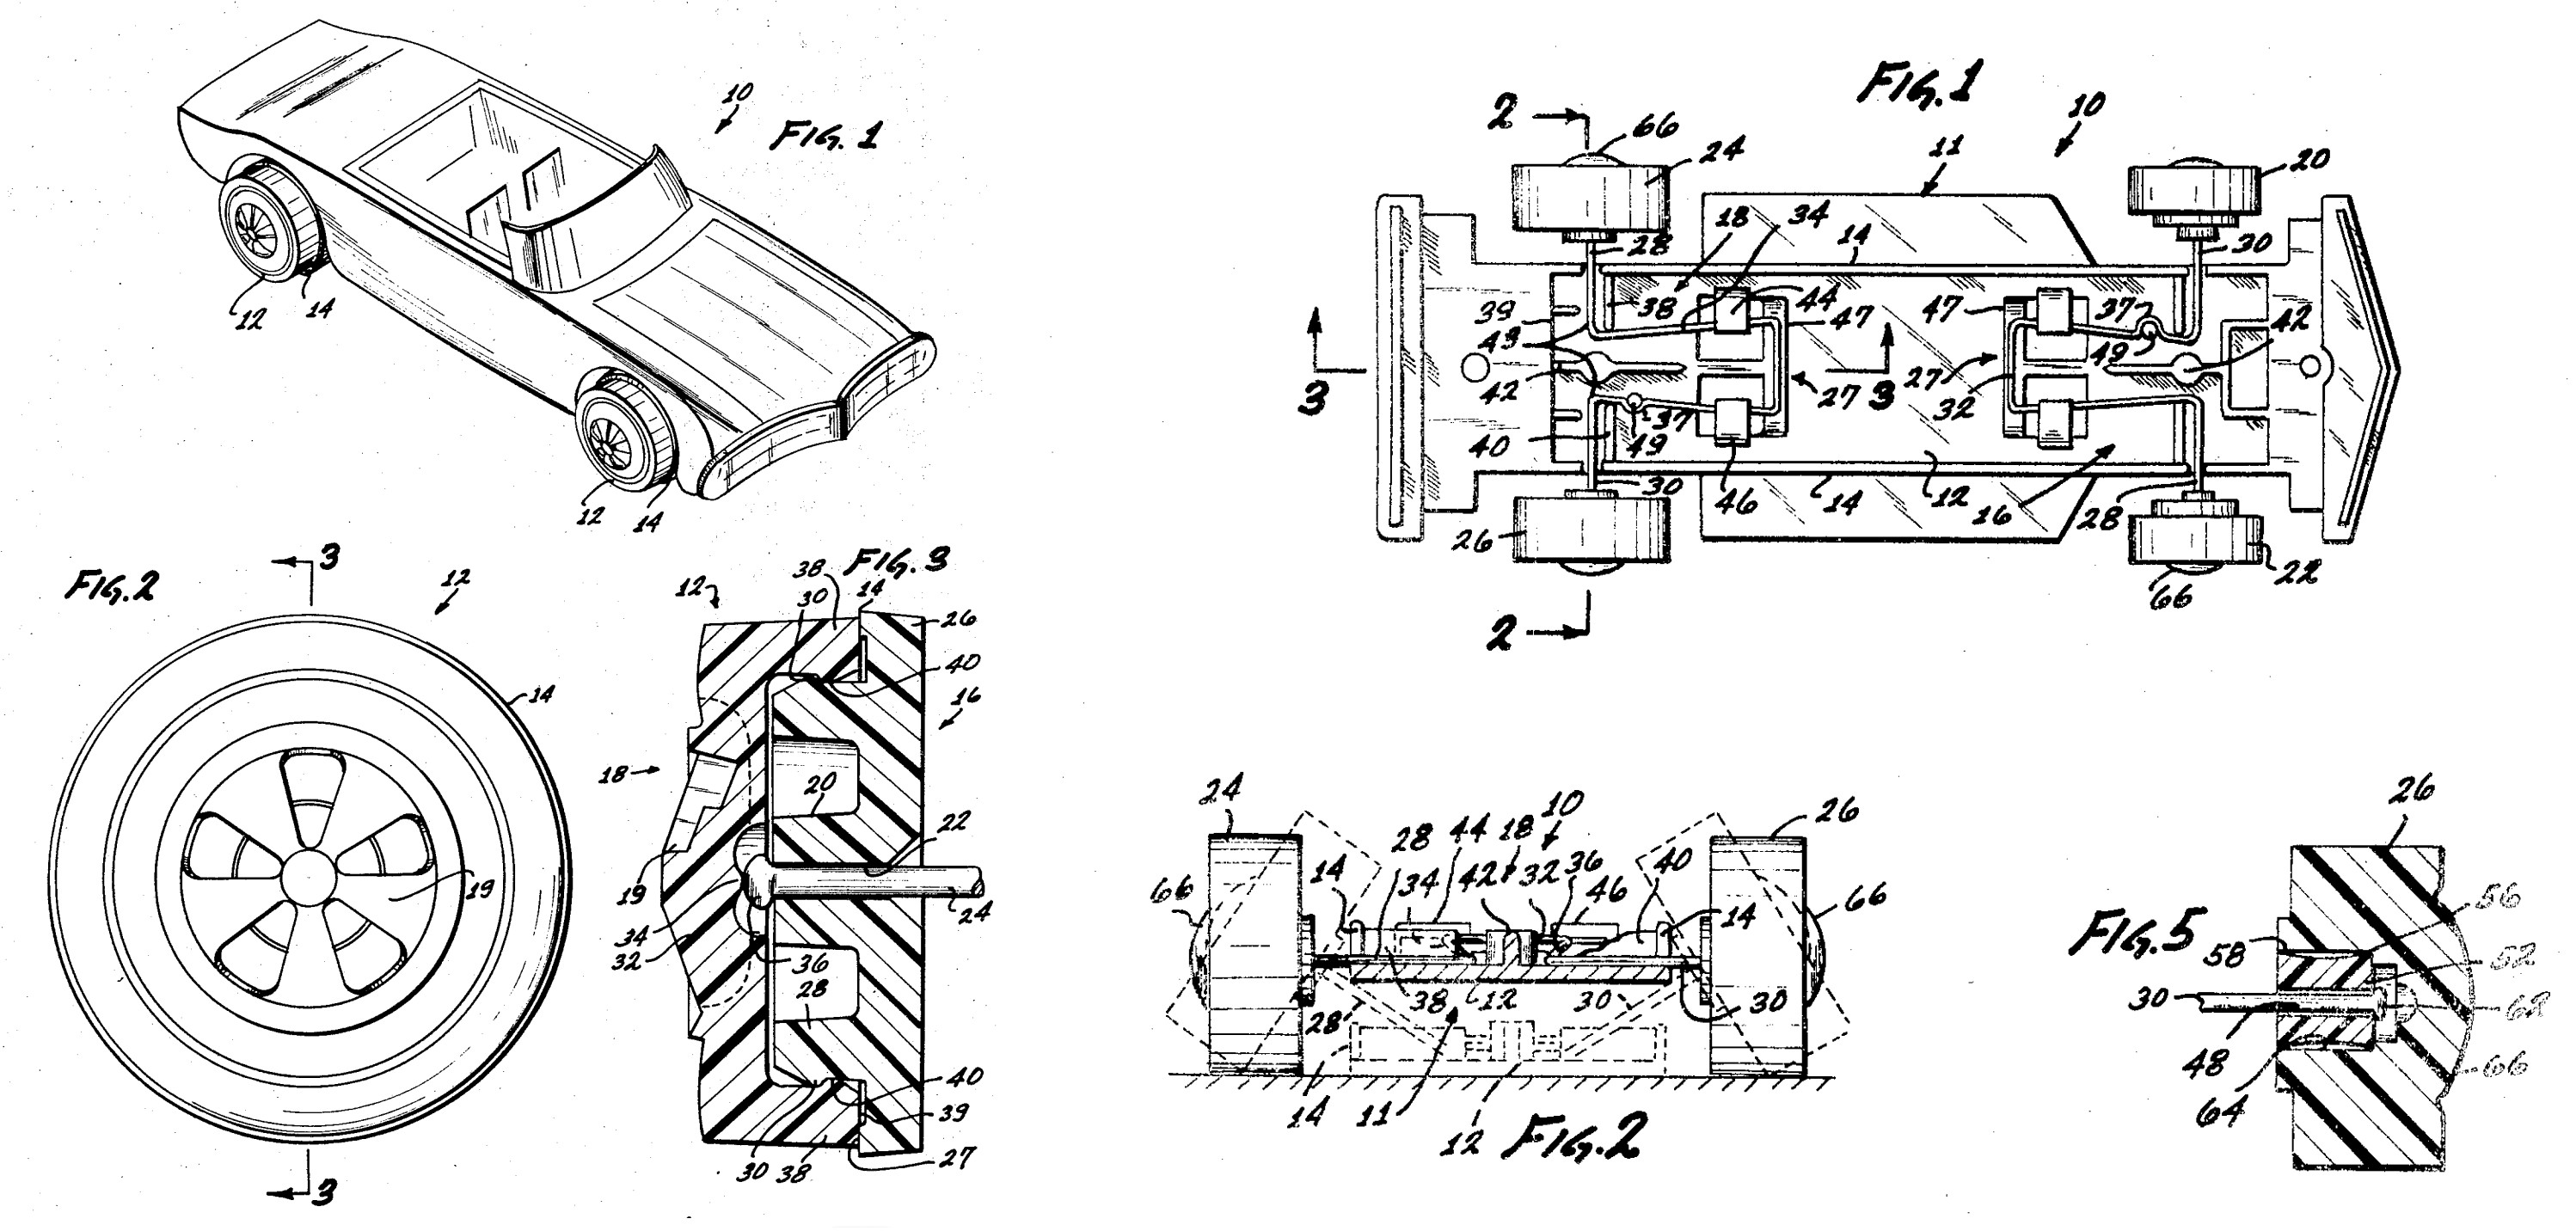 10
FIG. 1
12
14
12
14
FIG. 2
3
12
14
19
3
FIG. 3
12
38
30
14
26
40
16
18
20
22
19
24
34
32
36
28
40
39
30
38
27
FIG. 1
2
66
24
11
10
20
28
18
34
14
30
39
38
44
47
47
37
42
43
49
3
42
27
3
27
32
37
40
49
30
46
14
12
16
28
26
22
66
2
24
28
44
18
10
26
14
34
42
32
36
46
40
14
66
66
28
38
12
30
30
14
11
12
FIG. 2
26
FIG. 5
56
58
52
30
62
48
66
64